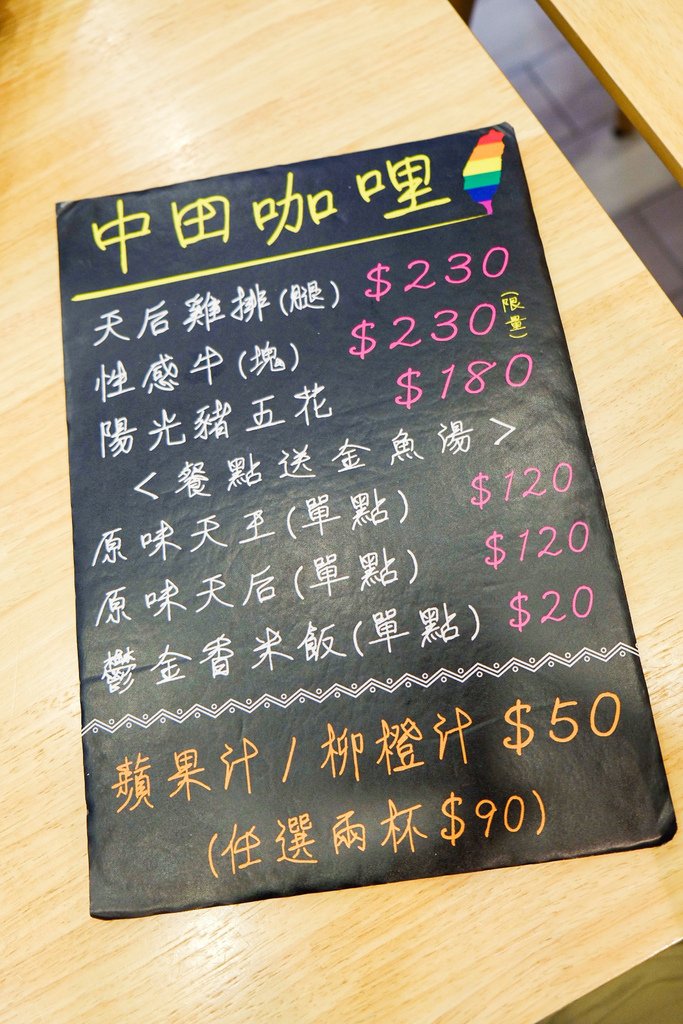 中田咖哩
天后雞排(腿) $230
性感牛(塊) $230(限量)
陽光豬五花 $180
<餐點送金魚湯>
原味天王(單點) $120
原味天后(單點) $120
鬱金香米飯(單點) $20
蘋果汁/柳橙汁 $50
(任選兩杯$90)